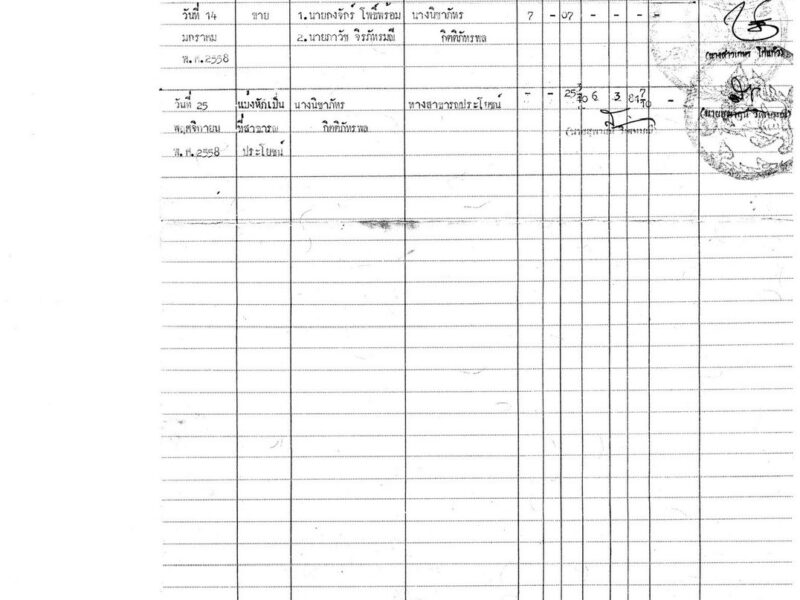 วันที่ 14 ขาย 1.นายกงจักร์ โพธิ์พร้อม นางนิชาภัทร 7 - 07 - - - - -
มกราคม 2.นายภาวัช จิรภัทรมณี กิตติภัทรพล
พ.ศ.2558
วันที่ 25 แบ่งหักเป็น นางนิชาภัทร ทางสาธารณประโยชน์ - - 25 3/10 6 - 3 84 7/10 -
พฤศจิกายน ที่สาธารณ กิตติภัทรพล
พ.ศ.2558 ประโยชน์